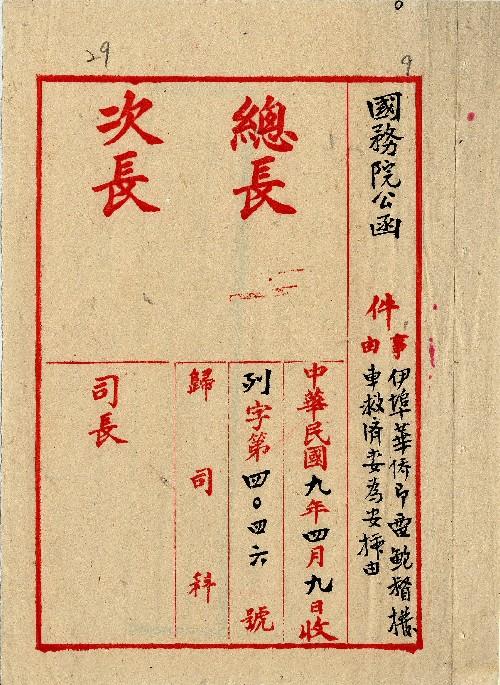 29
9
國務院公函
件
事由
伊埠華僑即電鮑督撥
車救濟妥為安插由
總長
次長
中華民國九年四月九日收
列字第四〇四六號
歸司科
司長